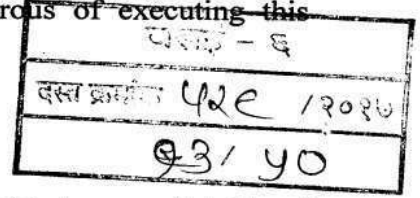 rous of executing this
- ६
दस्त क्रमांक ५२९ /२०१७
१३/ ५०